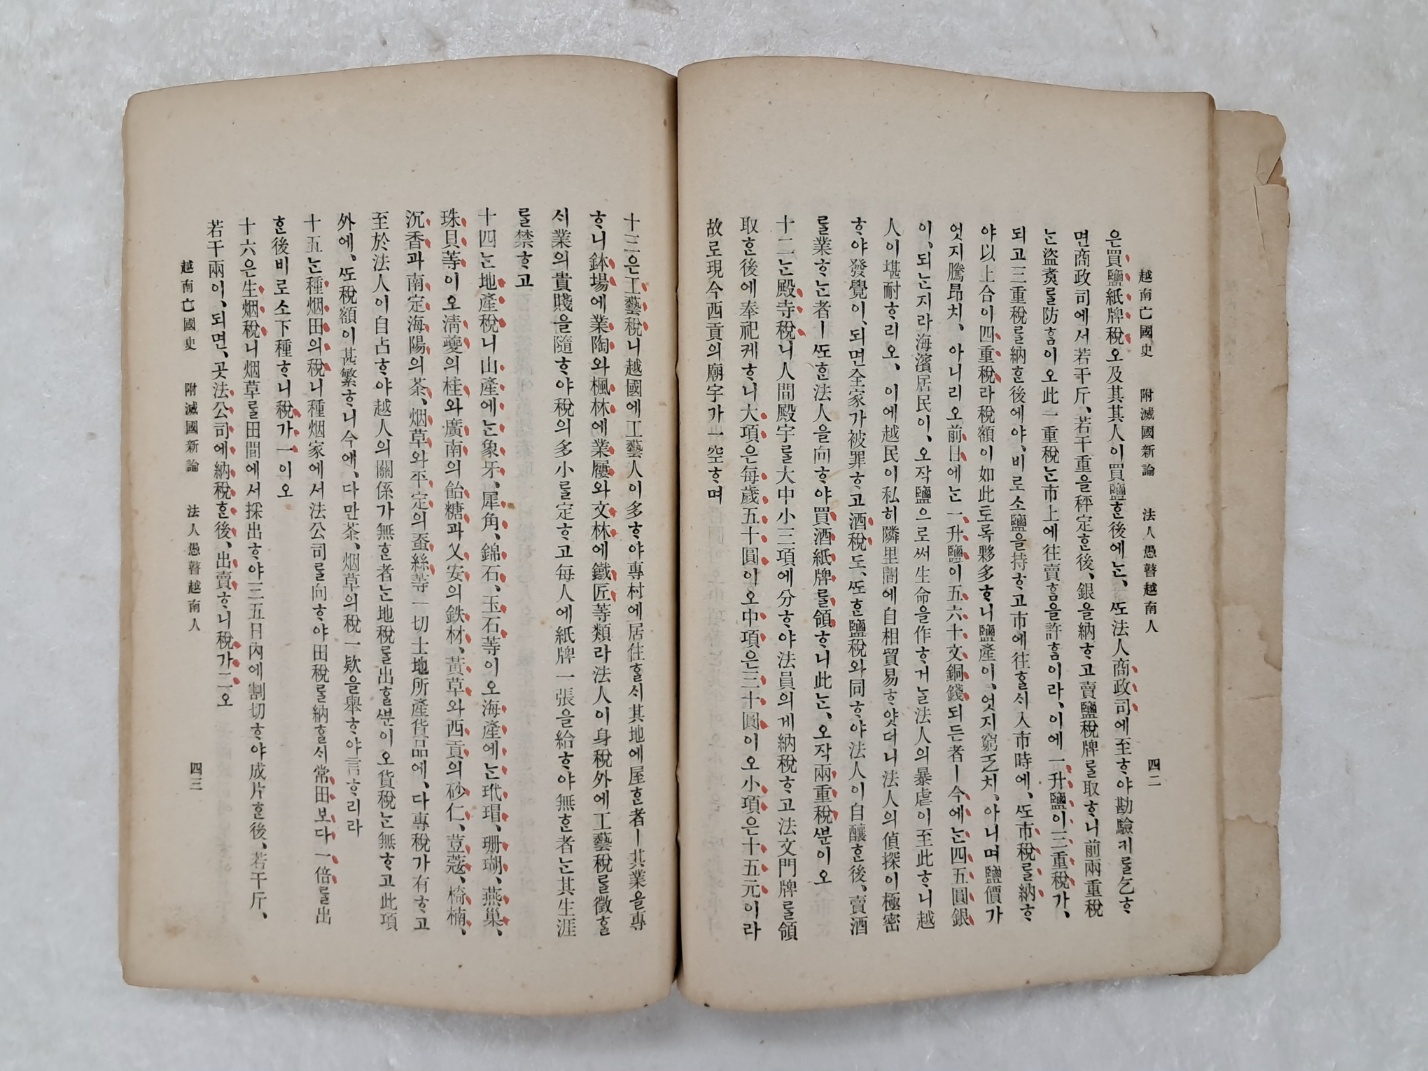 越南亡國史 附滅國新論 法人愚瞽越南人 四二
은買鹽紙牌稅오及其其人이買鹽ᄒᆞᆫ後에ᄂᆞᆫ、ᄯᅩ法人商政司에至ᄒᆞ야勘驗키를乞ᄒᆞ
면商政司에셔若干斤、若干重을秤定ᄒᆞᆫ後、銀을納ᄒᆞ고賣鹽稅牌를取ᄒᆞ니前兩重稅
ᄂᆞᆫ盜賣를防ᄒᆞᆷ이오此一重稅ᄂᆞᆫ市上에往賣ᄒᆞᆷ을許ᄒᆞᆷ이라、이에一升鹽이三重稅가、
되고三重稅를納ᄒᆞᆫ後에야、비로소鹽을持ᄒᆞ고市에往ᄒᆞᆯᄉᆡ入市時에、ᄯᅩ市稅를納ᄒᆞ
야以上合이四重稅라稅額이如此토록夥多ᄒᆞ니鹽產이、엇지窮乏치、아니며鹽價가
엇지騰昂치、아니리오前日에ᄂᆞᆫ一升鹽이五六十文銅錢되든者ㅣ今에ᄂᆞᆫ四五圓銀
이、되ᄂᆞᆫ지라海濱居民이、오작鹽으로써生命을作ᄒᆞ거ᄂᆞᆯ法人의暴虐이至此ᄒᆞ니越
人이堪耐ᄒᆞ리오、이에越民이私히隣里間에自相貿易ᄒᆞ얏더니法人의偵探이極密
ᄒᆞ야發覺이、되면全家가被罪ᄒᆞ고酒稅도、ᄯᅩᄒᆞᆫ鹽稅와同ᄒᆞ야法人이自釀ᄒᆞᆫ後、賣酒
를業ᄒᆞᄂᆞᆫ者ㅣᄯᅩᄒᆞᆫ法人을向ᄒᆞ야買酒紙牌를領ᄒᆞ니此ᄂᆞᆫ、오작兩重稅ᄲᅮᆫ이오
十二ᄂᆞᆫ殿寺稅니人間殿宇를大中小三項에分ᄒᆞ야法員의게納稅ᄒᆞ고法文門牌를領
取ᄒᆞᆫ後에奉祀케ᄒᆞ니大項은每歲五十圓이오中項은三十圓이오小項은十五元이라
故로現今西貢의廟宇가一空ᄒᆞ며
十三은工藝稅니越國에工藝人이多ᄒᆞ야專村에居住ᄒᆞᆯᄉᆡ其地에屋ᄒᆞᆫ者ㅣ其業을專
ᄒᆞ니鉢場에業陶와楓林에業屨와文林에鐵匠等類라法人이身稅外에工藝稅를徵ᄒᆞᆯ
ᄉᆡ業의貴賤을隨ᄒᆞ야稅의多小를定ᄒᆞ고每人에紙牌一張을給ᄒᆞ야無ᄒᆞᆫ者ᄂᆞᆫ其生涯
를禁ᄒᆞ고
十四ᄂᆞᆫ地產稅니山產에ᄂᆞᆫ象牙、犀角、錦石、玉石等이오海產에ᄂᆞᆫ玳瑁、珊瑚、燕巢、
珠貝等이오淸、夔의桂와廣南의飴糖과乂安의鉄材、黃草와西貢의砂仁、荳蔲、椅楠、
沉香과南定海陽의茶、烟草와平定의蚕絲等一切土地所產貨品에、다專稅가有ᄒᆞ고
至於法人이自占ᄒᆞ야越人의關係가無ᄒᆞᆫ者ᄂᆞᆫ地稅를出ᄒᆞᆯᄲᅮᆫ이오貨稅ᄂᆞᆫ無ᄒᆞ고此項
外에、ᄯᅩ稅額이甚繁ᄒᆞ니今에、다만茶、烟草의稅一欵을擧ᄒᆞ야言ᄒᆞ리라
十五ᄂᆞᆫ種烟田의稅니種烟家에셔法公司를向ᄒᆞ야田稅를納ᄒᆞᆯᄉᆡ常田보다一倍를出
ᄒᆞᆫ後비로소下種ᄒᆞ니稅가一이오
十六은生烟稅니烟草를田間에셔採出ᄒᆞ야三五日內에割切ᄒᆞ야成片ᄒᆞᆫ後、若干斤、
若干兩이、되면、곳法公司에納稅ᄒᆞᆫ後、出賣ᄒᆞ니稅가二오
越南亡國史 附滅國新論 法人愚瞽越南人 四三